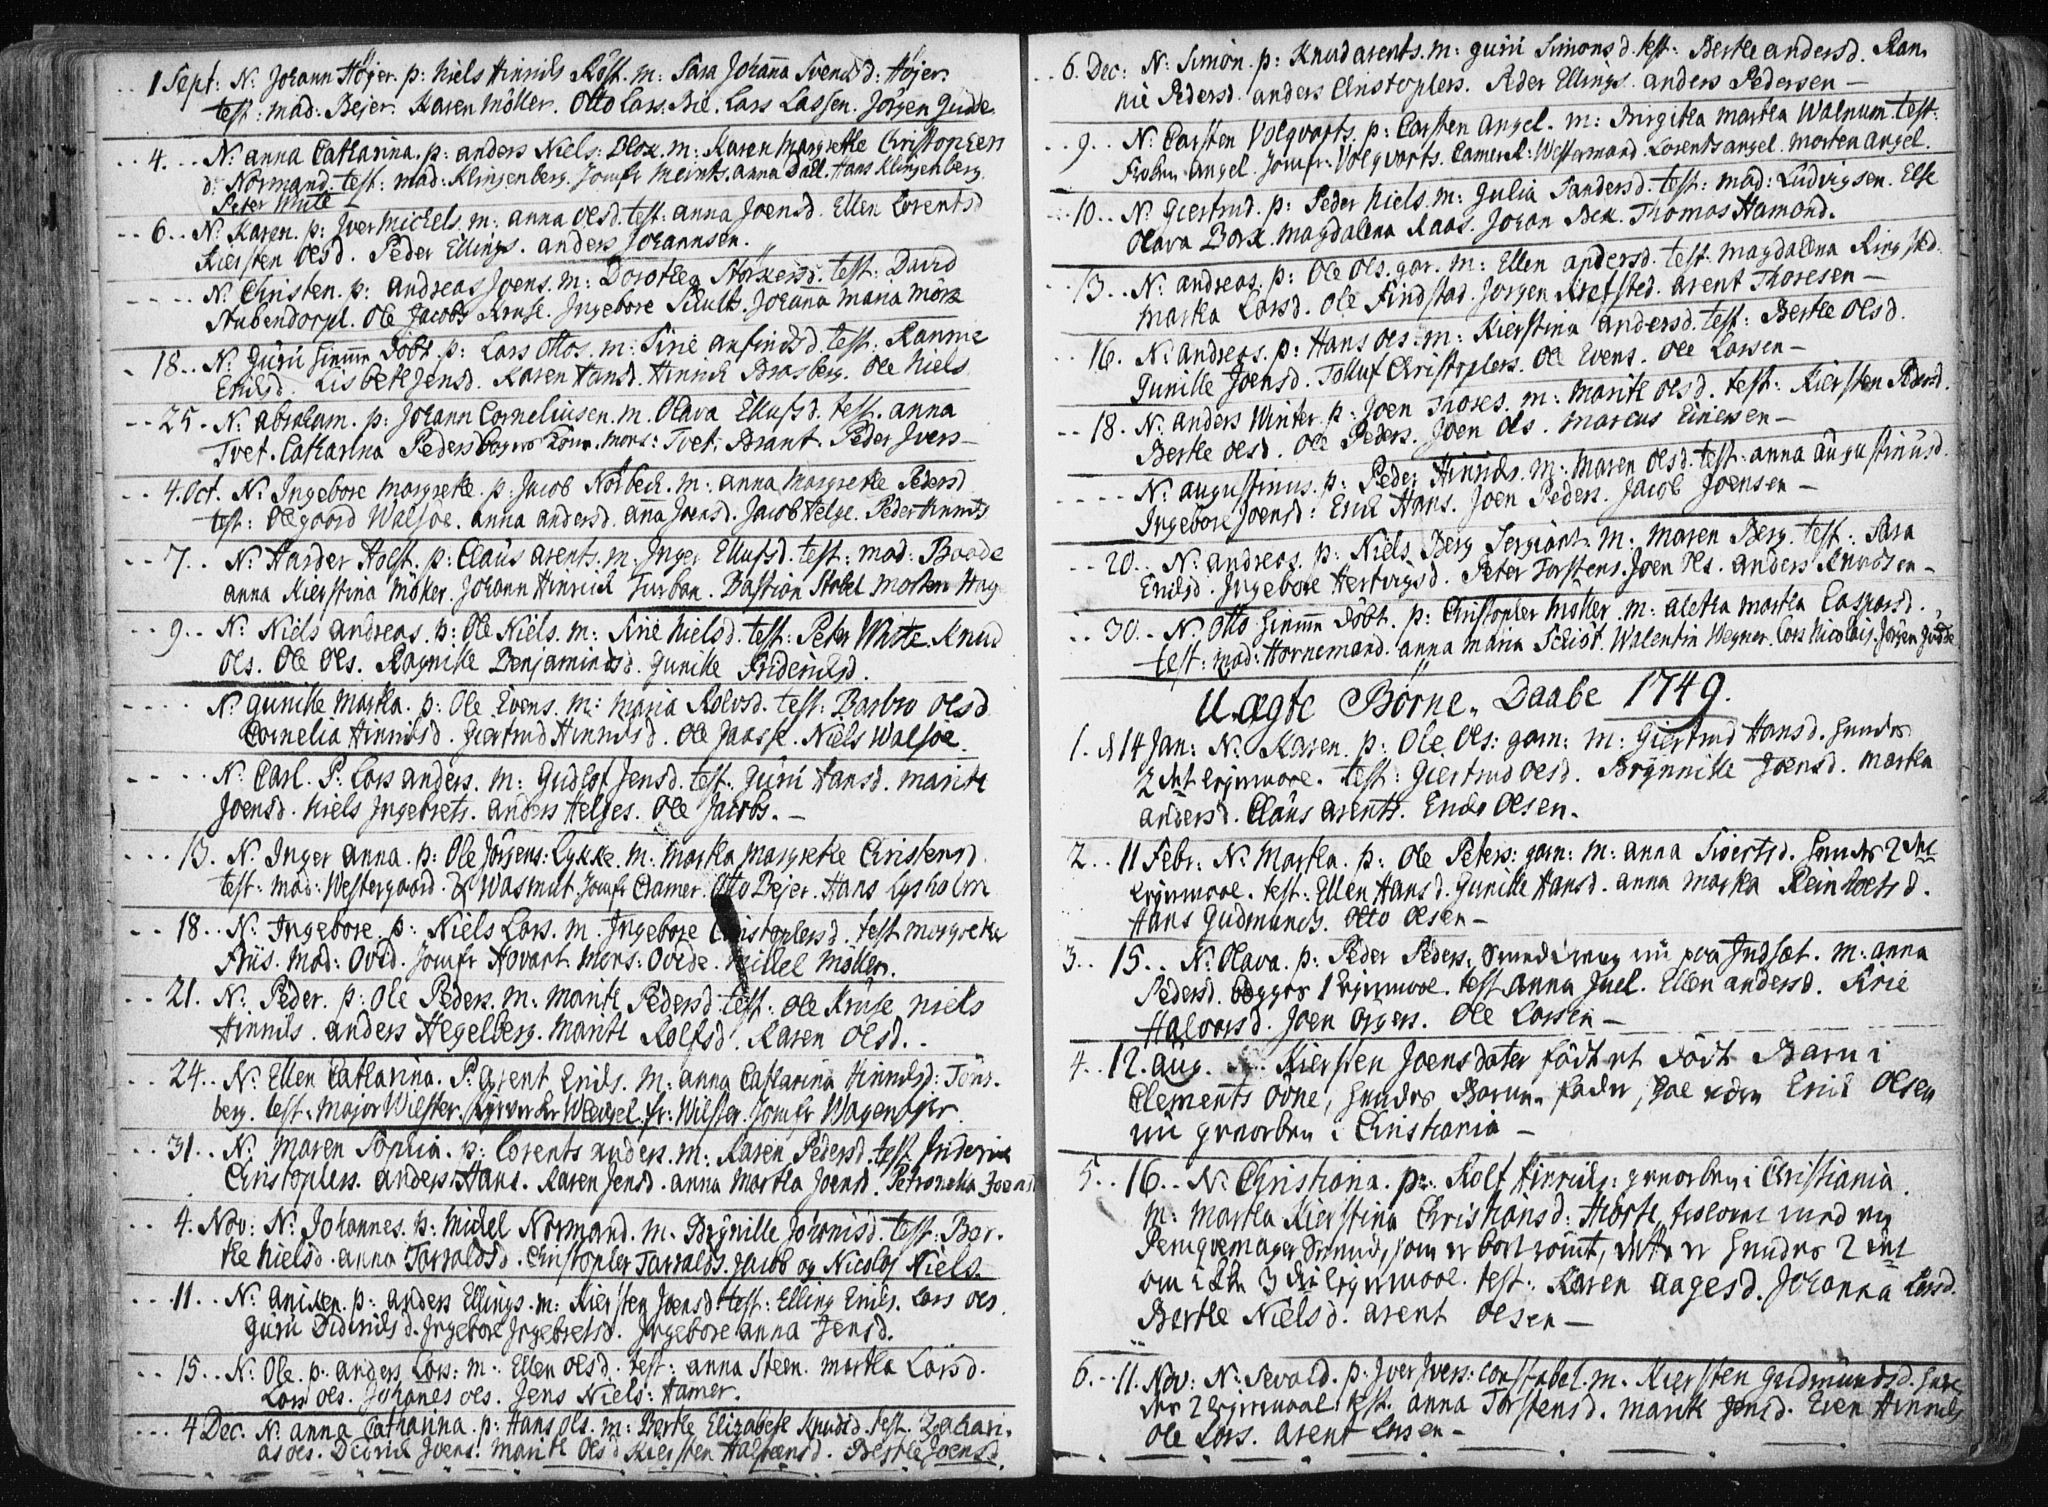 1 Sept: N: Johann Höjer. p: Niels Hinrichs Röst. m: Sara Johanna Svensd: Höjer.
test: mad: Bejer. Karen Möller. Otto Lars. Lars Lassen. Jörgen Gude
4. N: anna Catharina. p: anders Niels: m: Karen Margrethe Christophers
d: Normand. test: mad: Klingenberg. Jomfr Meints. anna Dall. Hans Klingenberg.
Peter Mule
6. N: Karen. p: Jver Michels. m: anna Olsd. test: anna Joensd. Ellen Lorentsd
Kiersten Olsd. Peder Ellings. anders Johannsen.
N: Christen. p: andreas Joens. m: Dorothea Störkersd. test: David
Stubendorph. Ole Jacobs Kruse. Ingebore Schult. Johanna Maria Mörk
18. N: Guru hiemme döbt. p: Lars Ottos. m: Sirie anfindsd. test: Rannie
Erichsd. Lisbeth Jensd. Karen Hansd. Hinrich Brasberg. Ole Niels
25. N: abraham. p: Johann Corneliusen. m. Olava Ellufsd. test. anna
Tvet. Catharina Peders Mons: Tvet. Brant. Peder Jvers
4. Oct. N: Ingebore Margrethe. p: Jacob Norbech. m: anna Margrethe Pedersd
test: Olegaard Walsöe. anna andersd. ana Joensd. Jacob Helge. Peder Hinrichs
7. N: Harder Holst. p: Claus arents. m: Inger Ellufsd. test: mad: Baade
anna Kierstina Möller. Johann Hinrich Turban. Bastian Stabel Morten
9. N: Niels andreas. p: Ole Niels. m: Sirie Nielsd. test: Peter White. Knud
Ols. Ole Ols. Ragnille Benjaminsd. Gunille Friderichsd.
N: Gunille Martha. p: Ole Evens. m: Maria Rolvsd. test: Barbro Olsd
Cornelia Hinrichsd. Giertrud Hinrichsd. Ole Jaasse. Niels Walsöe.
N: Carl. P: Lars anders. m: Gudlof Jensd. test: Guru Hansd. Marith
Joensd. Niels Ingebrets. anders Helges. Ole Jacobs.
13. N: Inger anna. p: Ole Jörgens: Lykke. m: Martha Margrethe Christensd.
test: mad: Westergaard. Wasmut Jomfr Cramer. Otto Bejer. Hans Lysholm
18. N: Ingebore. p: Niels Lars. m. Ingebore Christophersd. test Margrethe
Friis. Mad: Ovid. Jomfr Hovart. Mons: Ovide. Michel Möller.
21. N: Peder. p: Ole Peders. m: Marith Pedersd. test: Ole Kruse Niels
Hinrichs. anders Hegelberg. Marith Rolfsd. Karen Olsd.
24. N: Ellen Catharina. P: arent Erichs. m: anna Catharina Hinrichsd: Töns-
berg. test: Major Wilster. fr: Wilster. Jomfr Wagener.
31. N: Maren Sophia. p: Lorents anders. m: Karen Pedersd. test Friderich
Christophers. anders Hans. Karen Jensd. anna Martha Joensd. Petronella Joensd
4. Nov: N: Johannes. p: Michel Normand. m. Brynille Johannisd. test: Ber-
the Nielsd. anna Tarraldsd. Christopher Tarralds. Jacob og Nicolaj Niels.
11. N: aniken. p: anders Ellings. m: Kiersten Joensd. test: Elling Erichs. Lars Ols
Guru Didrichsd. Ingebore Ingebretsd. Ingebore anna Jensd.
15. N: Ole. p: anders Lars: m: Ellen Olsd. test: anna Steen. Martha Larsd.
Lars Ols. Johanes Ols. Jens Niels: Hamer.
4 Dec. N: anna Catharina. p: Hans Ols. m: Berthe Elizabeth Knudsd. test. Zachari-
as Ols. Didrich Joens. Marith Olsd Kiersten Halstensd. Berthe Joensd.
6. Dec: N: Simon. p: Knud arents. m: Guru Simonsd. test: Berthe andersd. Ran-
nie Pedersd. anders Christophers. Peder Ellings. anders Pedersen
9. N: Carsten Volqvarts. p: Carsten Angel. m: Birgitha Martha Walnum. test:
Angel. Jomfr: Volqvarts. CamerR: Westermand. Lorents Angel. Morten Angel.
10. N: Giertrud. p: Peder Niels. m: Julia Sandersd. test: mad: Ludvigsen. Else
Olava Bork. Magdalena Raas. Johan Bek. Thomas Hamond.
13. N: andreas. p: Ole Ols. gar. m: Ellen andersd. test: Magdalena Ringsted.
Martha Larsd. Ole Findstad. Jörgen Krefsted. arent Thoresen
16. N: andreas. p: Hans Ols. m: Kierstina andersd. test: Berthe Olsd.
Gunille Joensd. Tolluf Christophers. Ole Evens. Ole Larsen
18. N: anders Winter. p: Joen Thores. m: Marith Olsd. test: Kiersten Pedersd.
Berthe Olsd. Ole Peders. Joen Ols. Marcus Einersen
N: augustinus. p: Peder Hinrichs. m: Maren Olsd. test: anna augustinusd.
Ingebore Joensd: Erich Hans. Joen Peders. Jacob Joensen
20. N: andreas. p: Niels Berg Sergiant. m: Maren Berg. test: Sara
Erichsd. Ingebore Hertvigsd. Peter Torstens. Joen Ols. anders Knudsen
30. N: Otto hiemme döbt. p: Christopher Möller. m: aletha Martha Caspersd.
test: mad: Hornemand. anna Maria Schiöt. Walentin Wegner. Lars Nicolais. Jörgen Gude
U-ægte Børne-Daabe 1749.
1. d 14 Jan: N: Karen. p: Ole Ols: garn: m: Giertrud Hansd. hendes
2det leyermaal. test: Giertrud Olsd. Brynnille Joensd. Martha
andersd. Claus arents. Erich Olsen.
2. 11 Febr: N: Martha. p: Ole Peters: garn: m: anna Siversd. hendes 2det
leyermaal. test: Ellen Hansd. Gunille Hansd. anna Martha Reinholtsd.
Hans Gudmunds. Otto Olsen
3. 15. N: Olava. p: Peder Peders. nu paa Indsæt. m: anna
Pedersd. begges 1 leyermaal. test anna Juel. Ellen andersd. Kirie
Halvorsd. Joen Ols. Ole Larsen
4. 12. aug. Kiersten Joensdater födt et död Barn i
Clements , hendes Barne-fader, være Erich Olsen
nu i Christiania
5. 16. N: Christiana. p: Rolf Hinrichs: i Christiania.
m: Martha Kierstina Christiansd: Hiorth, med en
Svend, som er bortrömt, dette er hendes 2det
3die leyermaal. test: Karen aagesd. Johanna Larsd.
Berthe Nielsd. arent Olsen
6. 11. Nov: N: Sevald. p: Jver Jvers: Constabel. m. Kiersten Gudmundsd.
2 leyermaal. test. anna Torstensd. Marith Jensd. Even Hinrichs
Ole Lars. arent Larsen